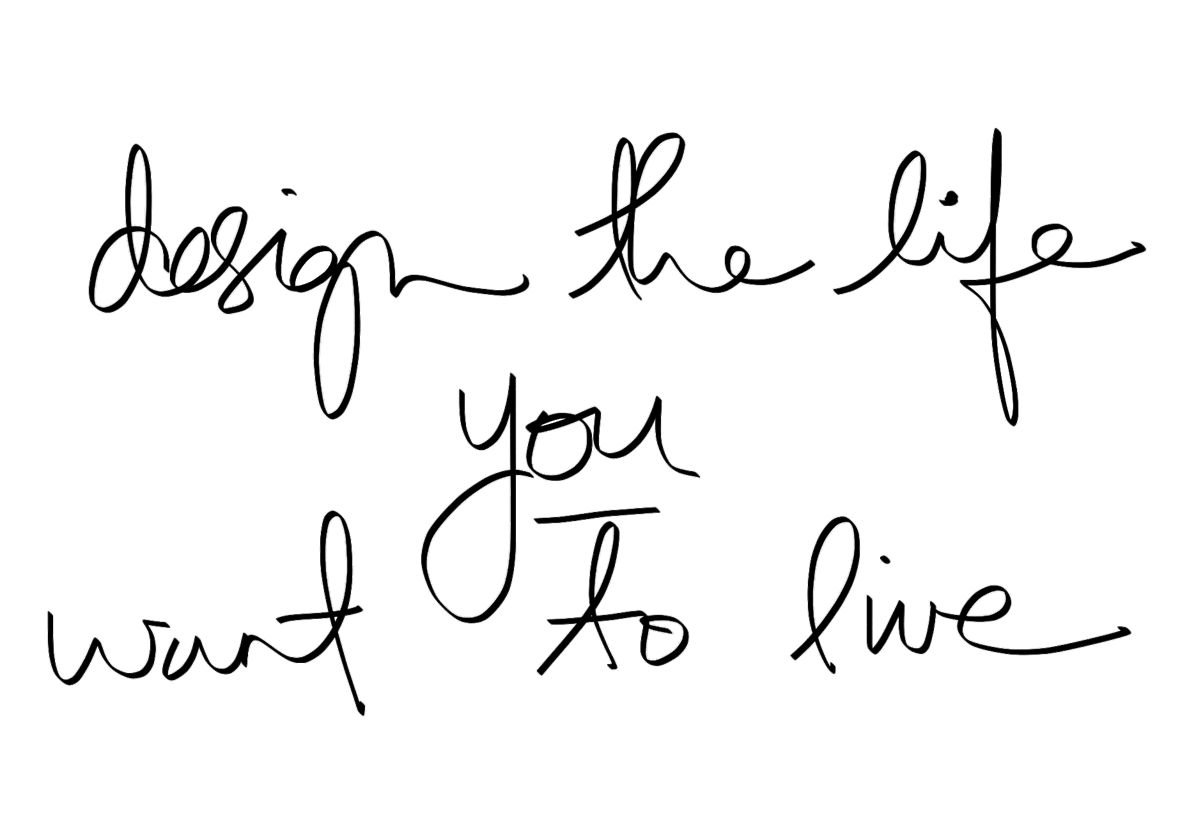 design the life
you
want to live